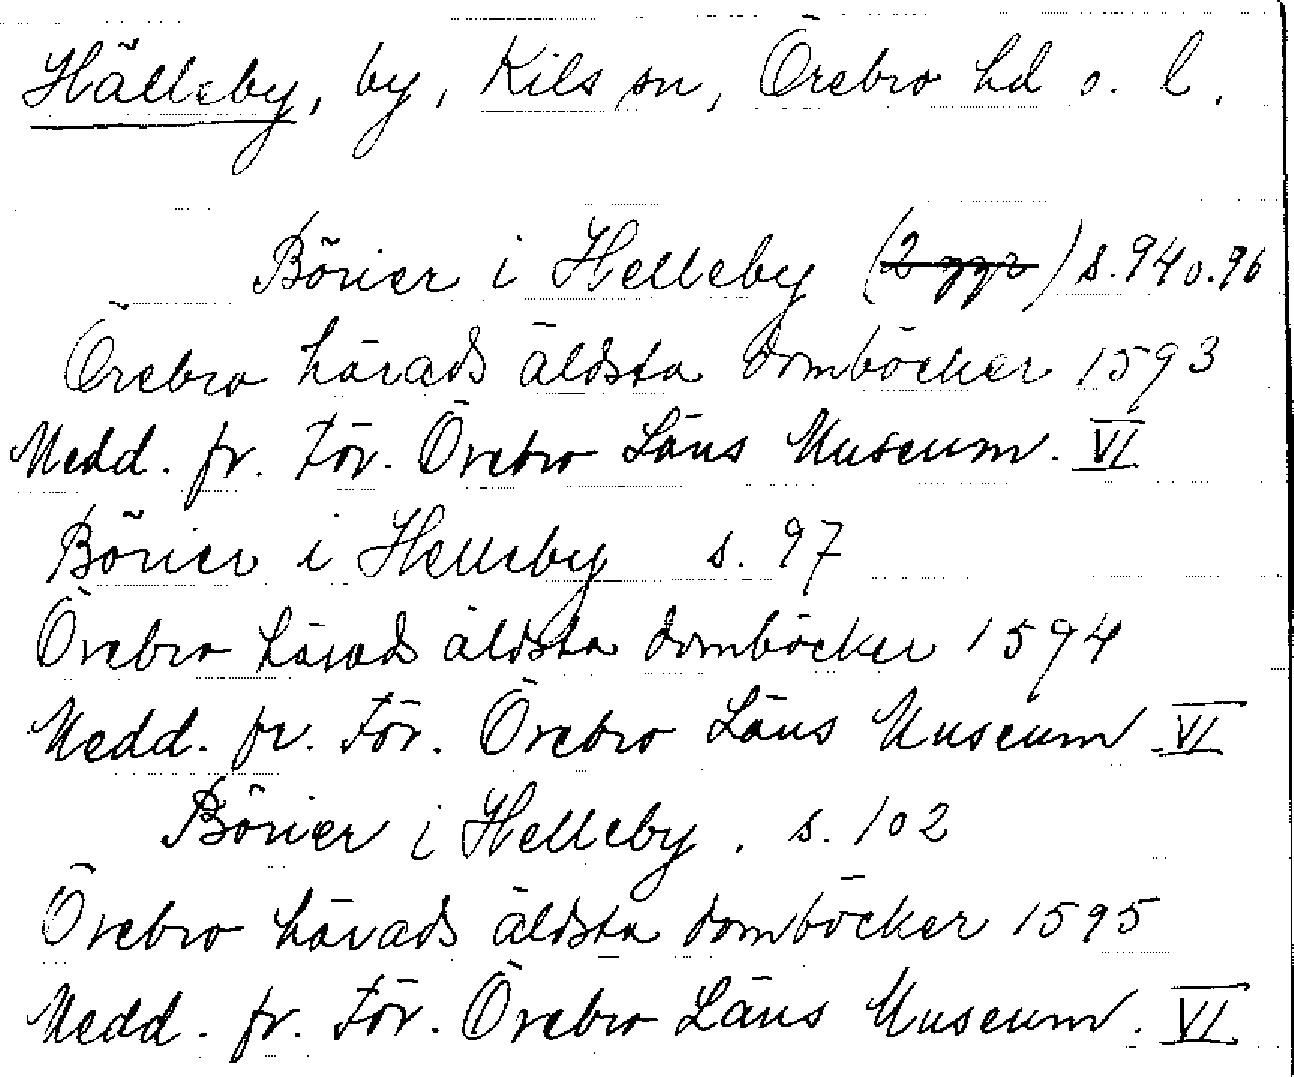 Hälleby, by, Kils sn, Örebro hd o. l.
Börier i Helleby (2 ggr) s. 94 o. 96
Örebro härads äldsta domböcker 1593
Medd. fr. För. Örebro Läns Museum. VI
Börier i Helleby s. 97
Örebro härads äldsta domböcker 1594
Medd. fr. För. Örebro Läns Museum VI
Börier i Helleby. s. 102
Örebro härads äldsta domböcker 1595
Medd. fr. För. Örebro Läns Museum. VI